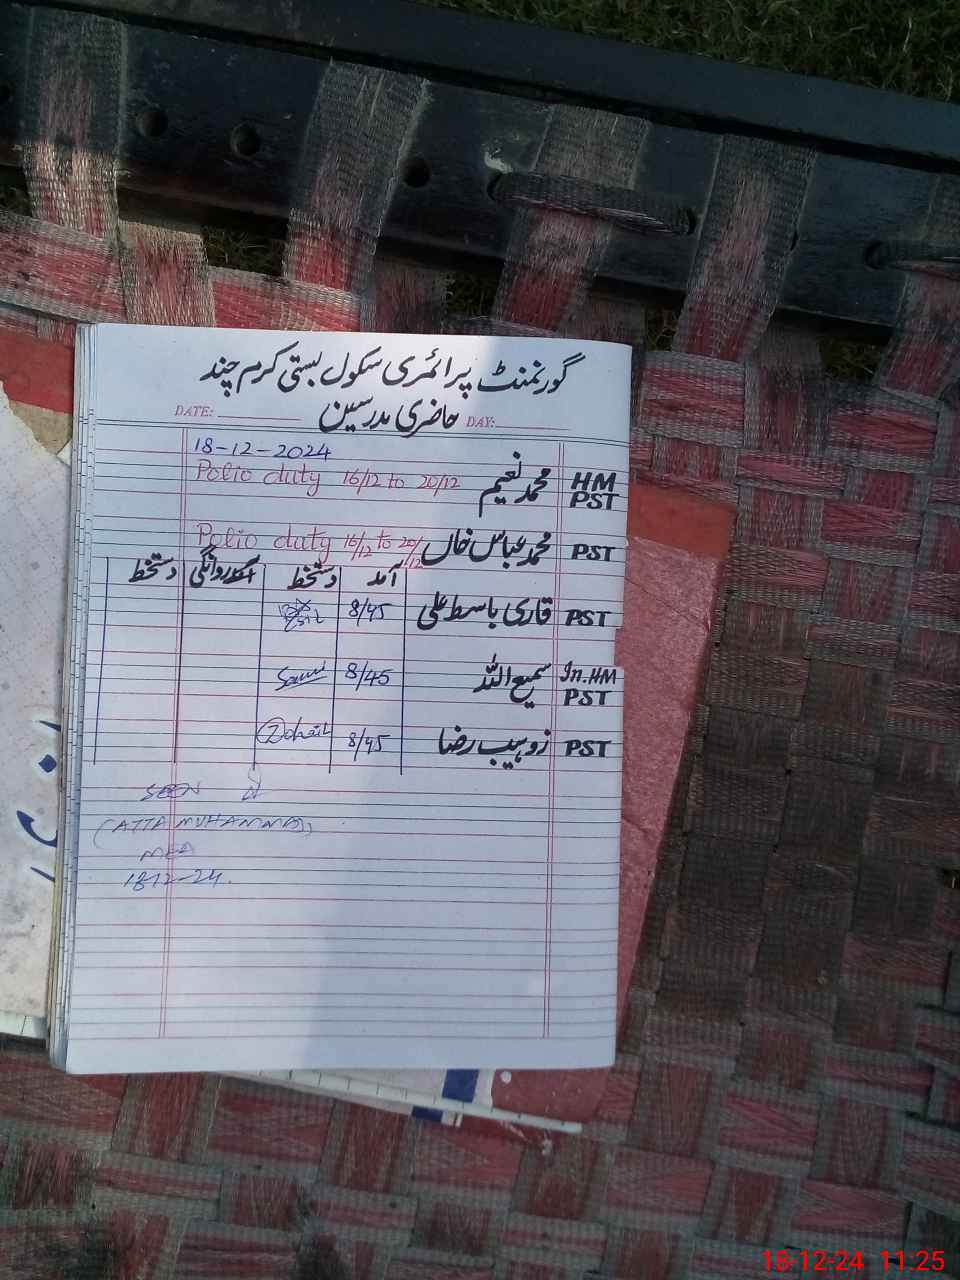 گورنمنٹ پرائمری سکول بستی کرم چند
DATE: حاضری مدرسین DAY:
18-12-2024
HM محمد نعیم Polio duty 16/12 to 20/12
PST
PST محمد عباس خاں Polio duty 16/12 to 20/12
آمد دستخط روانگی دستخط
PST قاری باسط علی 8/45
In.HM سمیع اللہ 8/45 Sami
PST
PST زوہیب رضا 8/45 Zohaib
SEEN
(ATTA MUHAMMAD)
MEA
18-12-24.
18-12-24 11:25